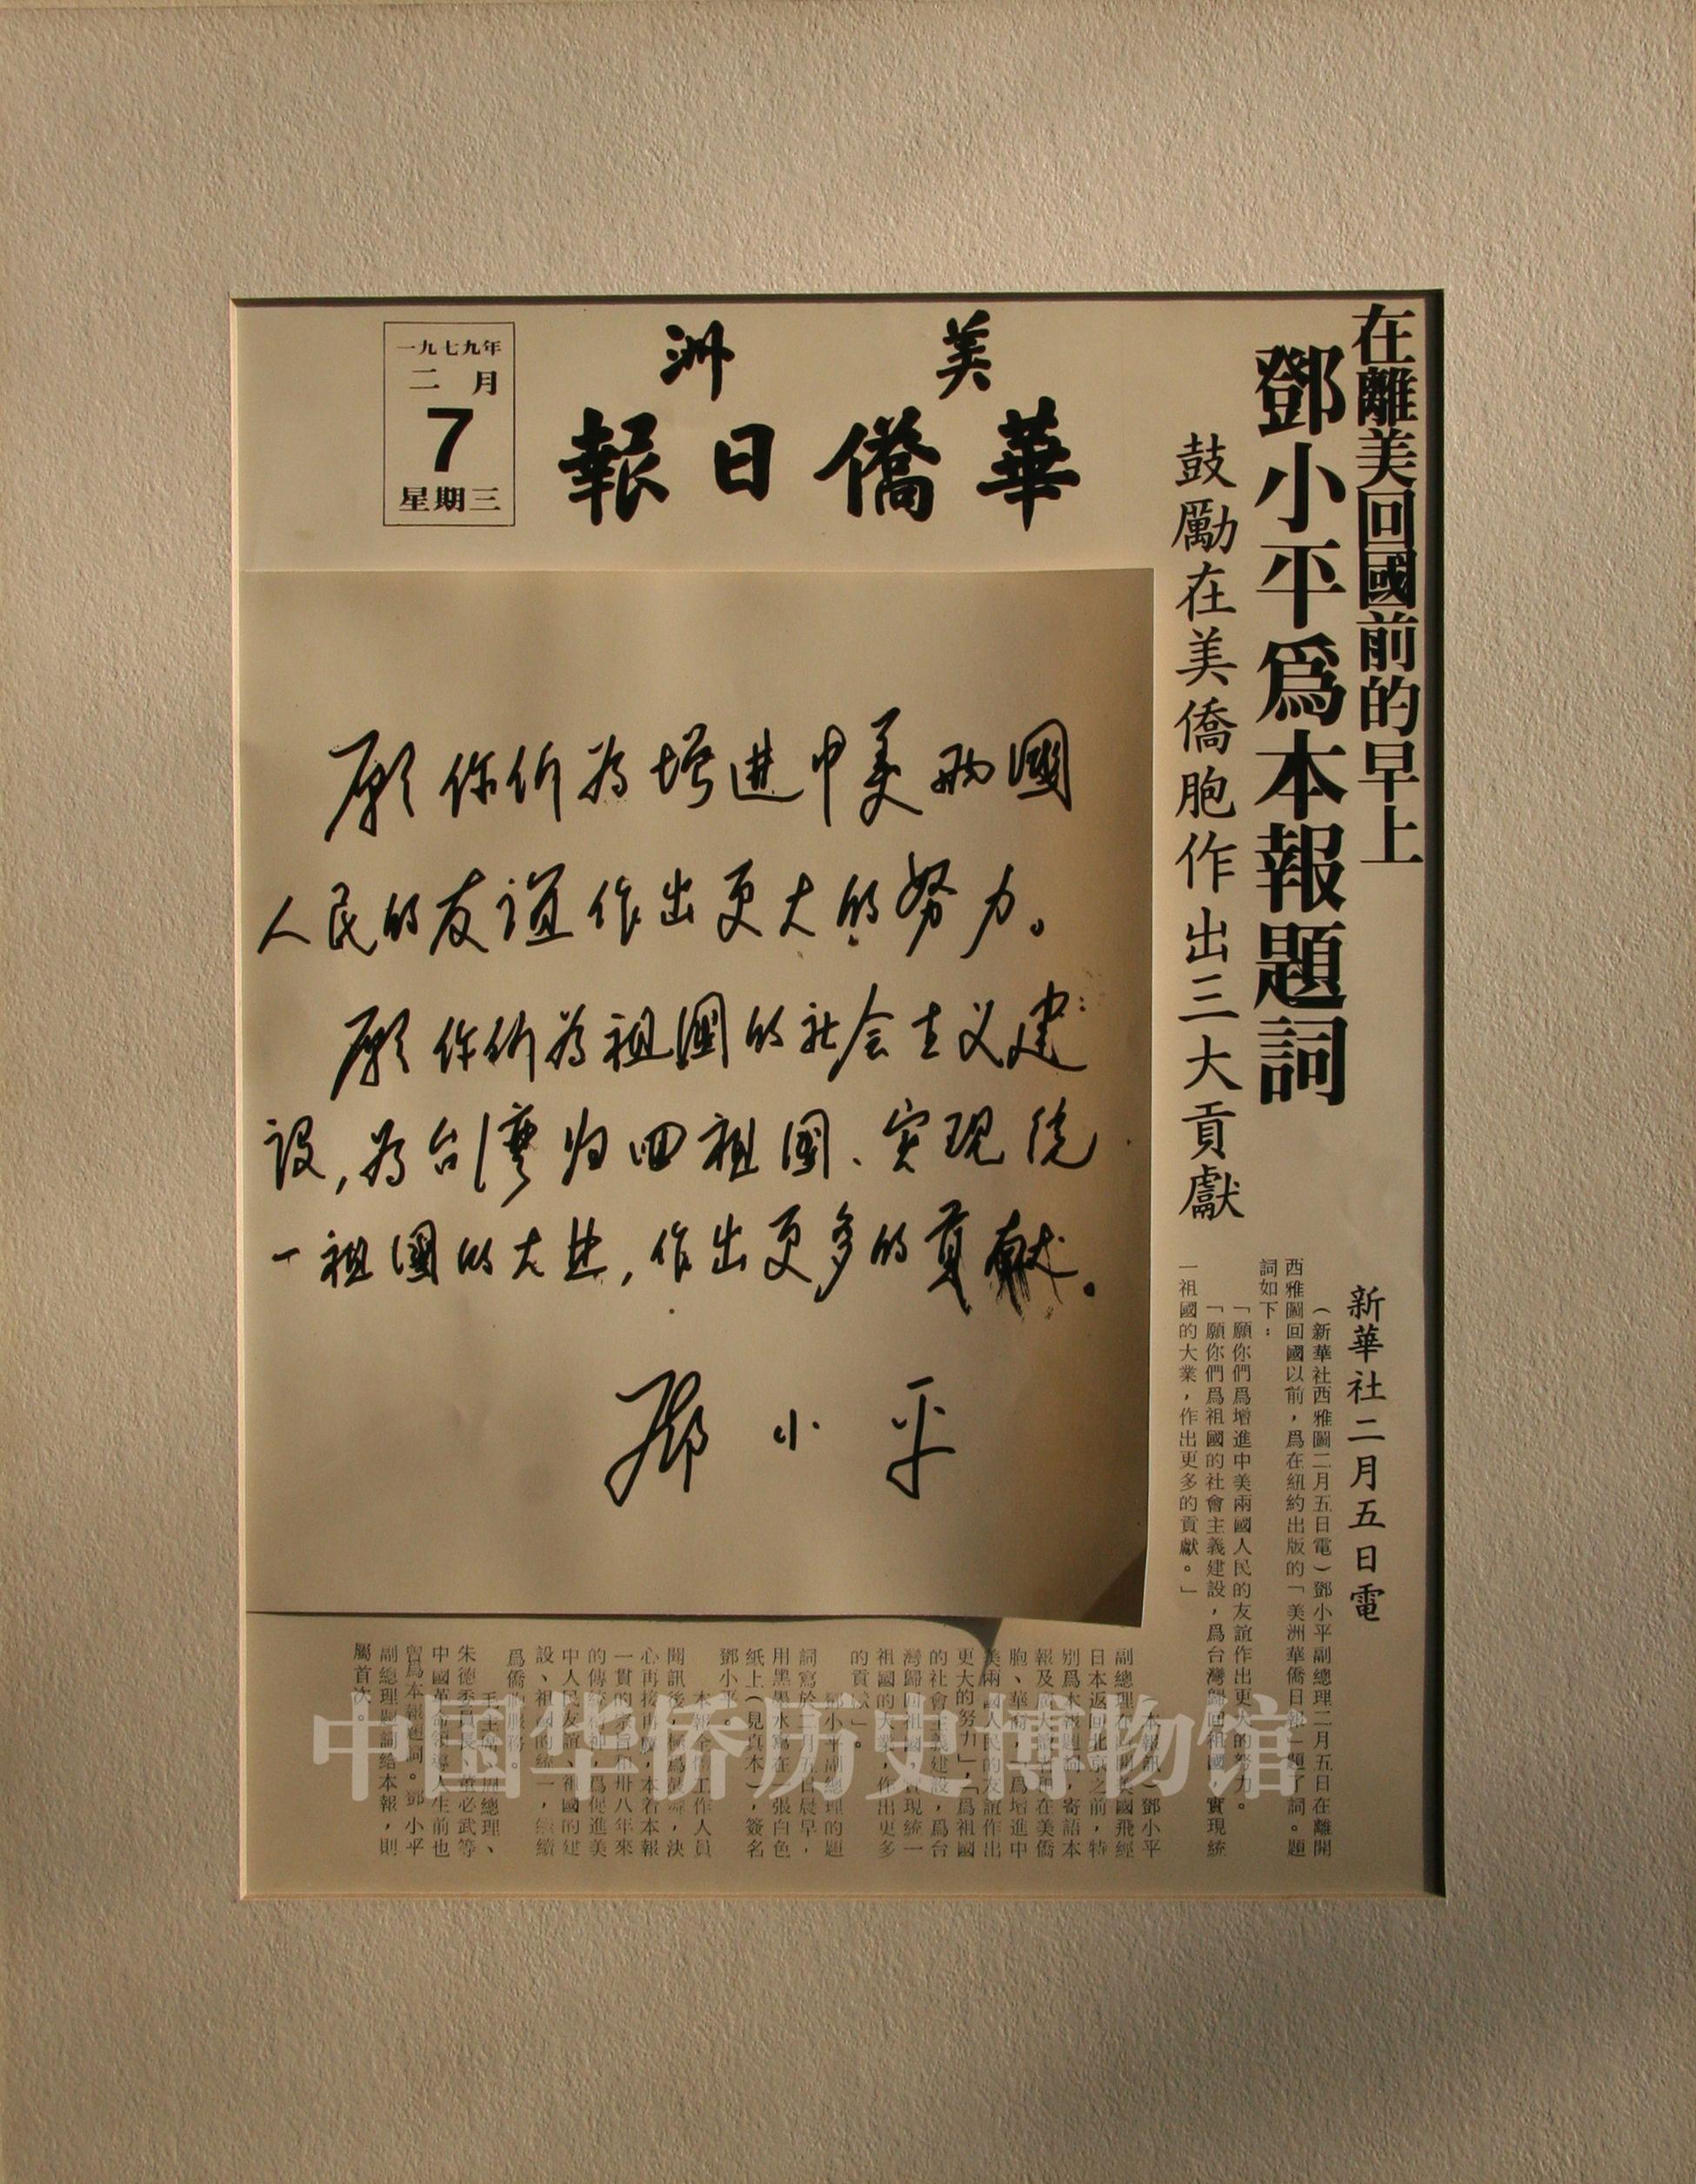 在離美回國前的早上
鄧小平爲本報題詞
鼓勵在美僑胞作出三大貢獻
美洲
華僑日報
一九七九年
二月
7
星期三
願你们为增进中美两國
人民的友谊作出更大的努力。
願你们为祖國的社会主义建
设,为台湾归回祖國、实现统
一祖國的大业,作出更多的貢献。
鄧小平
新華社二月五日電
(新華社西雅圖二月五日電)鄧小平副總理二月五日在離開
西雅圖回國以前,爲在紐約出版的「美洲華僑日報」題了詞。題
詞如下:
「願你們爲增進中美兩國人民的友誼作出更大的努力。
「願你們爲祖國的社會主義建設,爲台灣歸回祖國、實現統
一祖國的大業,作出更多的貢獻。」
(本報訊)鄧小平
副總理在離開美國飛經
日本返回北京之前,特
別爲本報題詞,寄語本
報及廣大讀者在美僑
胞、華裔,爲增進中
美兩國人民的友誼作出
更大的努力」,「爲祖國
的社會主義建設,爲台
灣歸回祖國、實現統一
祖國的大業,作出更多
的貢獻」。
鄧小平副總理的題
詞寫於二月五日晨早,
用黑墨水寫在一張白色
纸上(見真本),簽名
鄧小平。
本報全體工作人員
聞訊後,決
心再接再厲,本着本報
一貫的宗旨和卅八年來
的傳統精神,爲促進美
中人民友誼、祖國的建
設、祖國的統一,繼續
爲僑胞服務。
毛主席、周總理、
朱德委員長、董必武等
中國革命領導人生前也
曾爲本報題詞。鄧小平
副總理題詞給本報,則
屬首次。
中国华侨历史博物馆